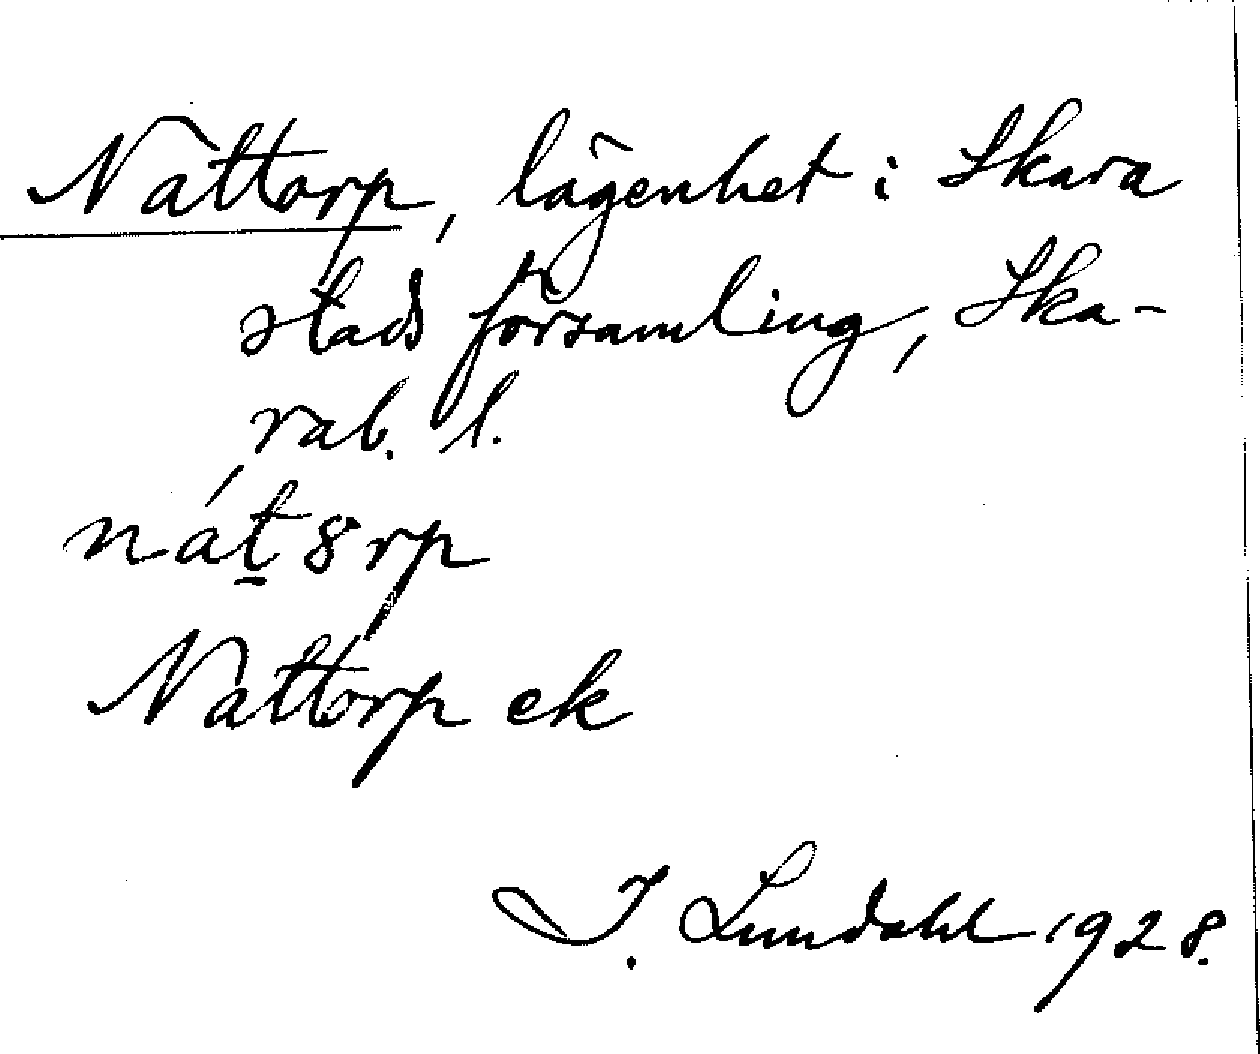 Nattorp, lägenhet i Skara
stads församling, Ska-
rab. l.
nát̲8rp
Nattorp ek
I. Lundahl 1928.